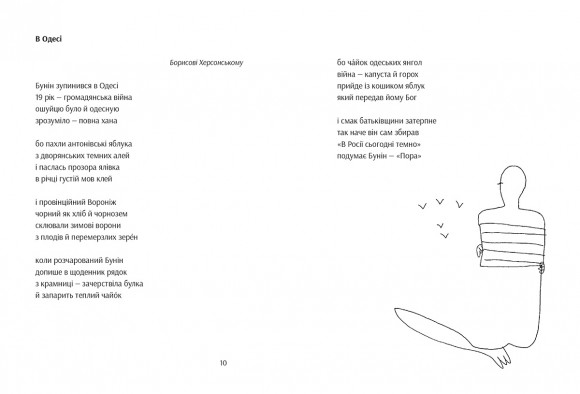 В Одесі
Борисові Херсонському
Бунін зупинився в Одесі
19 рік — громадянська війна
ошуйцю було й одесную
зрозуміло — повна хана
бо пахли антонівські яблука
з дворянських темних алей
і паслась прозора ялівка
в річці густій мов клей
і провінційний Вороніж
чорний як хліб й чорнозем
склювали зимові ворони
з плодів й перемерзлих зере́н
коли розчарований Бунін
допише в щоденник рядок
з крамниці — зачерствіла булка
й запарить теплий чайо́к
бо ча́йок одеських янгол
війна — капуста й горох
прийде із кошиком яблук
який передав йому Бог
і смак батьківщини затерпне
так наче він сам збирав
«В Росії сьогодні темно»
подумає Бунін — «Пора»
10